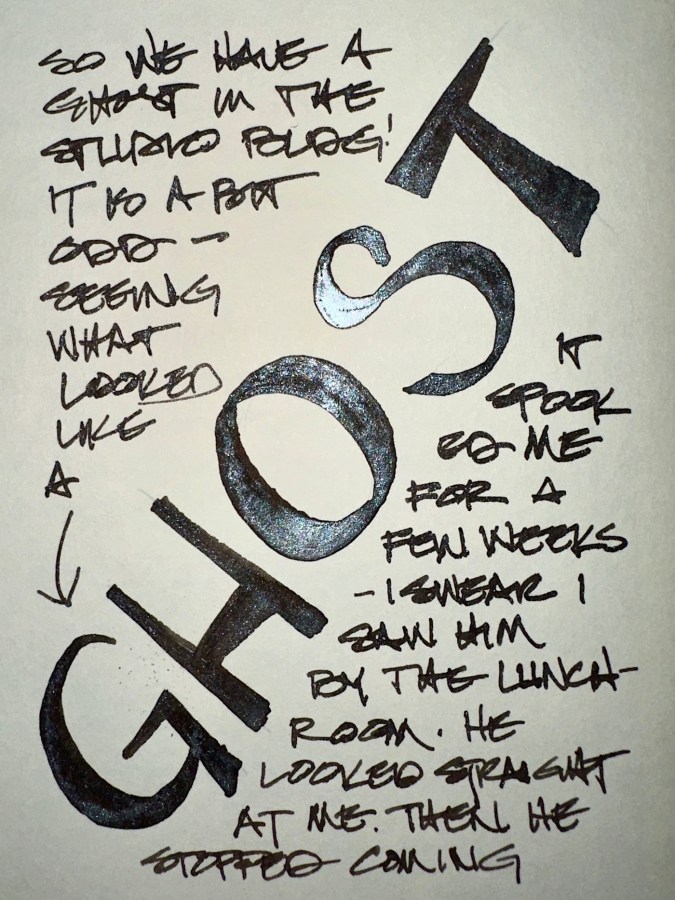 SO WE HAVE A
GHOST IN THE
STUDIO BLDG!
IT IS A BIT
ODD –
SEEING
WHAT
LOOKED
LIKE
A
GHOST
IT
SPOOK
ED ME
FOR A
FEW WEEKS
– I SWEAR I
SAW HIM
BY THE LUNCH-
ROOM. HE
LOOKED STRAIGHT
AT ME. THEN HE
STOPPED COMING